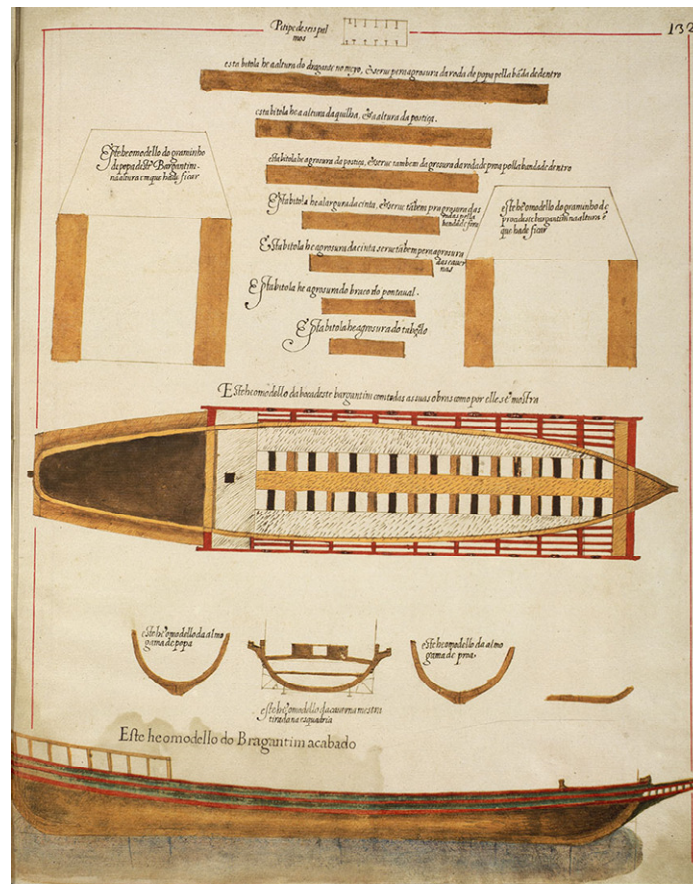 Pitipe de seis pal
mos
132
esta bitola he a altura do dragante no meyo, & serue pera grosura da roda de popa pella bãda de dentro
esta bitola he a altura da quilha, & a altura da postiça.
esta bitola he a grosura da postiça, & serue tambem da grosura da roda de proa polla banda de dentro
Esta bitola he a largura da cinta, & serue tãbem pra grosura das
rodas pella
banda de fora
Esta bitola he a grosura da cinta serue tãbem pera grosura
das cauer
nas
Esta bitola he a grosura do braco do pontaual.
Esta bitola he a grosura do taboão
Este he o modello do graminho
de popa deste Bargantim
na altura em que hade ficar
este he o modello do graminho de
proa deste bargantim na altura ẽ
que hade ficar
Este he o modello da boca deste bargantim com todas as suas obras como por elle se mostra
este he o modello da almo
gama de popa
este he o modello da almo
gama de proa.
este he o modello da cauerna mestra
tirada na esquadria
Este he o modello do Bragantim acabado